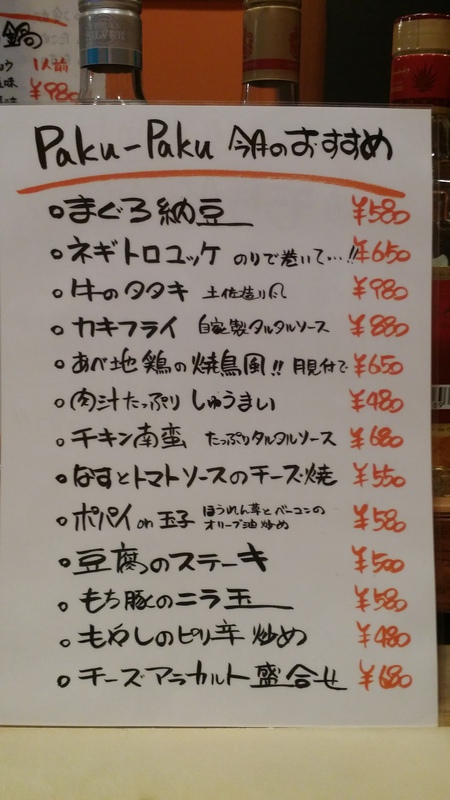 鍋
1人前
¥980
Paku-Paku 今月のおすすめ
まぐろ納豆 ¥580
ネギトロユッケ のりで巻いて…!! ¥650
牛のタタキ 土佐造り風 ¥980
カキフライ 自家製タルタルソース ¥880
あべ地鶏の焼鳥風!! 月見付で ¥650
肉汁たっぷりしゅうまい ¥480
チキン南蛮 たっぷりタルタルソース ¥680
なすとトマトソースのチーズ焼 ¥550
ポパイ on 玉子 ほうれん草とベーコンの
オリーブ油炒め ¥580
豆腐のステーキ ¥500
もち豚のニラ玉 ¥580
もやしのピリ辛炒め ¥480
チーズアラカルト盛合せ ¥680